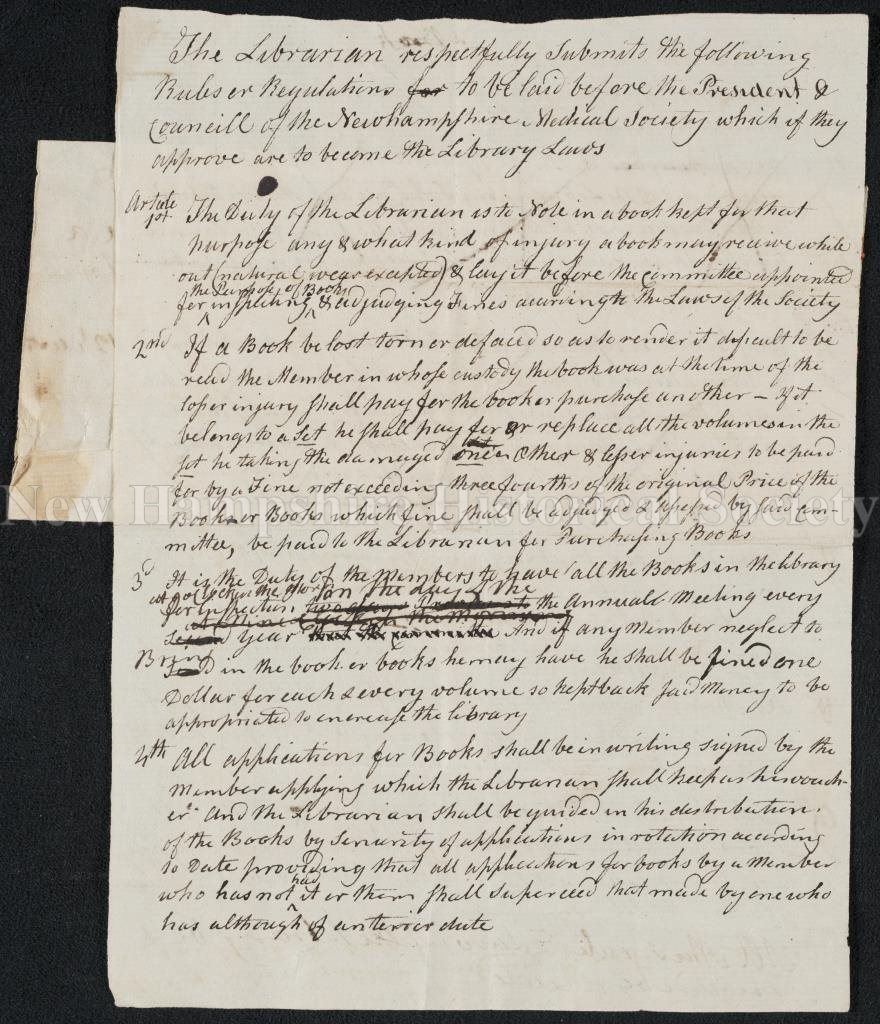 The Librarian respectfully Submits the following
Rules or Regulations for to be laid before the President &
Councill of the Newhampshire Medical Society which if they
approve are to become the Library Laws
Article
1st. The Duty of the Librarian is to Note in a book kept for that
purpose any & what kind of injury a book may receive while
out (natural wear excepted) & lay it before the Committee appointed
the Purpose of Books
for inspecting & adjudging Fines according to the Laws of the Society
2nd If a Book be lost torn or defaced so as to render it dificult to be
read the Member in whose custody the book was at the time of the
loss or injury shall pay for the book or purchase another – if it
belongs to a Set he shall pay for or replace all the volumes in the
set he taking the damaged one Other & lesser injuries to be paid
for by a Fine not exceeding three fourths of the original Price of the
Book or Books which fine shall be adjudged & assessed by said com-
mittee, be paid to the Librarian for Purchasing Books
3d It is the Duty of the Members to have all the Books in the library
on the day of the
for inspection the Annual Meeting every
year And if any Member neglect to
Bring
in the book or books he may have he shall be fined one
Dollar for each & every volume so kept back said Money to be
appropriated to encrease the library
4th All applications for Books shall be in writing signed by the
Member applying which the Librarian shall keep as his vouch-
er and the Librarian shall be guided in his distribution
of the Books by seniority of applications in rotation according
to Date providing that all applications for books by a Member
had
who has not it or them shall superceed that made by one who
has although of anterior date
New Hampshire Historical Society